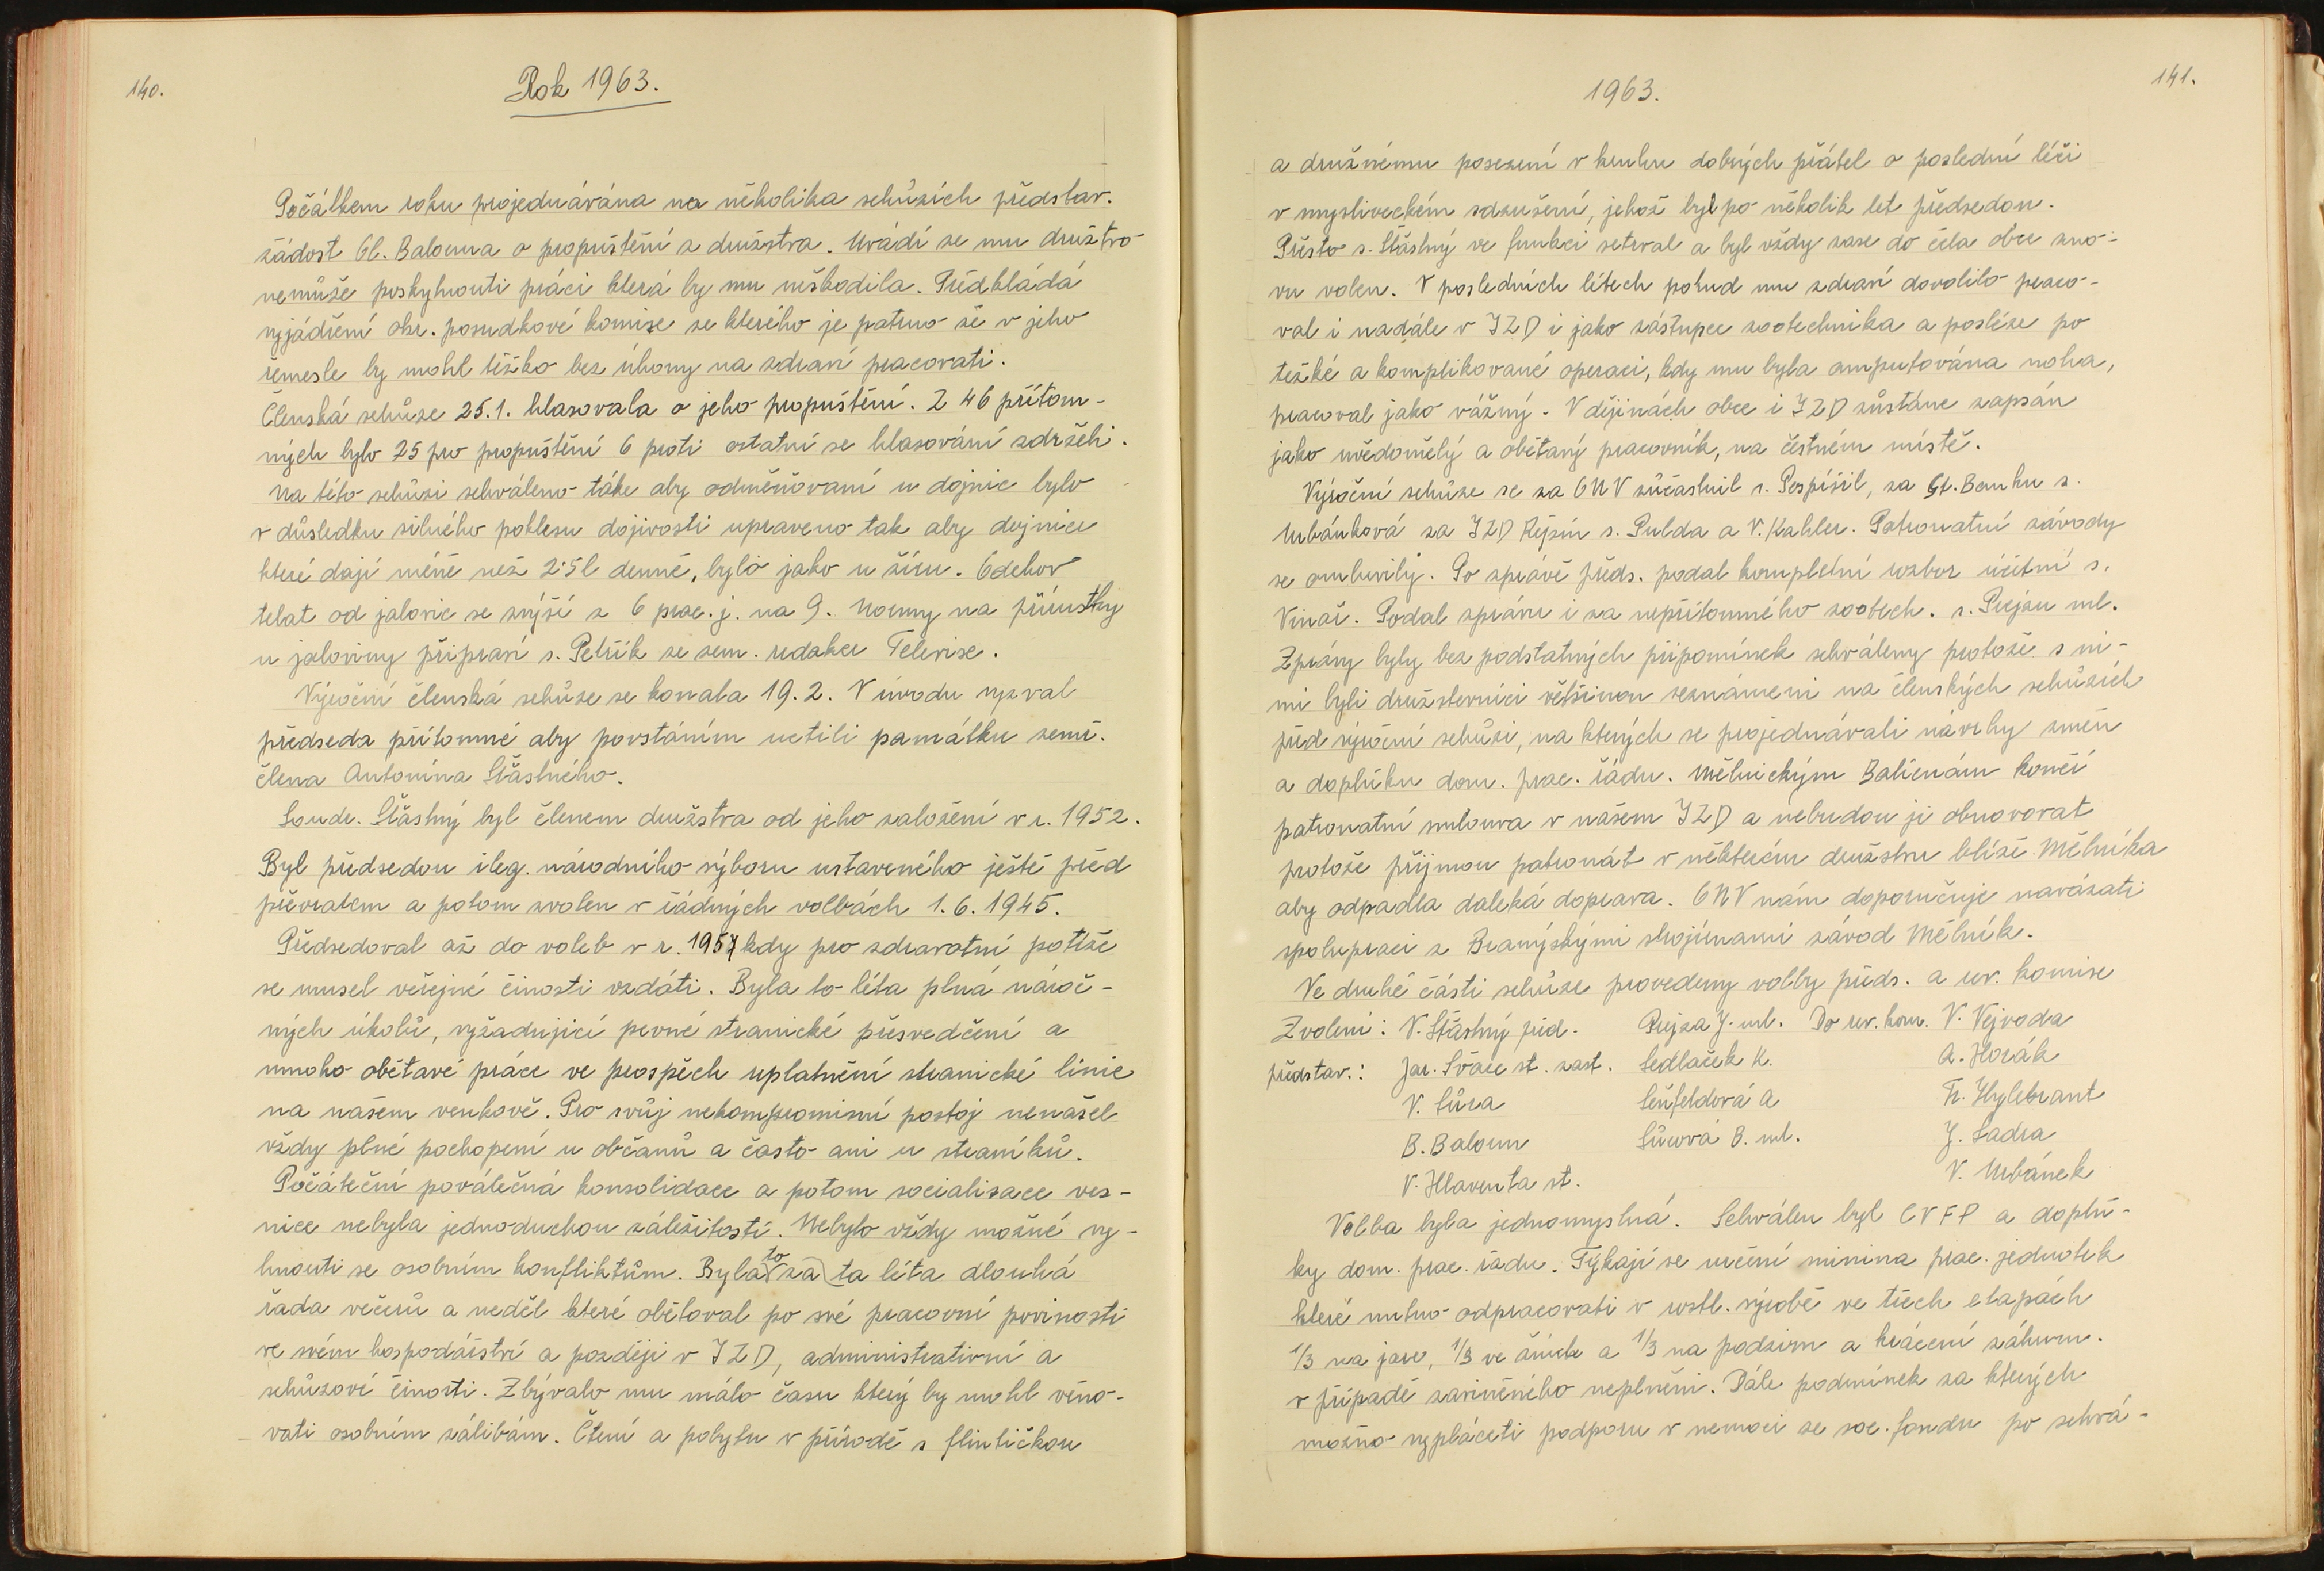 140.
Rok 1963.
Počátkem roku projednávána na několika schůzích představ.
žádost Ol. Balouna o propuštění z družstva. Uvádí se mu družtvo
nemůže poskytnouti práci která by mu neškodila. Předkládá
vyjádření okr. posudkové komise ze kterého je patrno že v jeho
řemesle by mohl těžko bez úhony na zdraví pracovati.
Členská schůze 25.1. hlasovala o jeho propuštění. Z 46 přítom-
ných bylo 25 pro propuštění 6 proti ostatní se hlasování zdrželi.
Na této schůzi schváleno také aby odměňovaní u dojnic bylo
v důsledku silného poklesu dojivosti upraveno tak aby dojnice
které dají méně než 2·5l denně, bylo jako u žíru. Odchov
telat od jalovic se zvýší z 6 prac. j. na 9. Normy na přírustky
u jaloviny připraví s. Petřík ze zem. redakce Televise.
Výroční členská schůze se konala 19.2. V úvodu vyzval
předseda přítomné aby povstáním uctili památku zemř.
člena Antonína Šťastného.
Soudr. Šťastný byl členem družstva od jeho založení v r. 1952.
Byl předsedou ileg. národního výboru ustaveného ještě před
převratem a potom zvolen v řádných volbách 1.6.1945.
Předsedoval až do voleb v r. 1957 kdy pro zdravotní potíže
se musel veřejné činosti vzdáti. Byla to léta plná nároč-
ných úkolů, vyžadující pevné stranické přesvedčení a
mnoho obětavé práce ve prospěch uplatnění stranické linie
na našem venkově. Pro svůj nekompromisní postoj nenašel
vždy plné pochopení u občanů a často ani u straníků.
Počáteční poválečná konsolidace a potom socialisace ves-
nice nebyla jednoduchou záležitostí. Nebylo vždy možné vy-
hnouti se osobním konfliktům. Byla to za ta léta dlouhá
řada večerů a neděl které obětoval po své pracovní povinosti
ve svém hospodářství a později v JZD, administrativní a
schůzové činosti. Zbývalo mu málo času který by mohl věno-
vati osobním zálibám. Čtení a pobytu v přírodě s flintičkou
1963.
141.
a družnému posezení v kruhu dobrých přátel o poslední léči
v mysliveckém sdružení, jehož byl po několik let předsedou.
Přesto s. Šťastný ve funkci setrval a byl vždy zase do čela obce zno-
vu volen. V posledních létech pokud mu zdraví dovolilo praco-
val i nadále v JZD i jako zástupce zootechnika a posléze po
težké a komplikované operaci, kdy mu byla amputována noha,
pracoval jako vážný. V dějinách obce i JZD zůstane zapsán
jako uvědomělý a obětaný pracovník, na čestném místě.
Výroční schůze se za ONV zúčastnil s. Pospíšil, za St. Banku s.
Urbánková za JZD Řepín s. Pulda a V. Kahler. Patronatní závody
se omluvily. Po zprávě předs. podal kompletní rozbor účetní s.
Vinař. Podal zprávu i za nepřítomného zootech. s. Prejzu ml.
Zprávy byly bez podstatných připomínek schváleny protože s ni-
mi byli družstevníci většinou seznámeni na členských schůzích
před výroční schůzi, na kterých se projednávali návrhy změn
a doplňku dom. prac. řádu. Mělnickým Balírnám končí
patronatní smlouva v našem JZD a nebudou ji obnovovat
protože přijmou patronát v některém družstvu blíže Mělníka
aby odpadla daleká doprava. ONV nám doporučuje navázati
spolupraci z Branýskými strojírnami závod Mělník.
Ve druhé části schůze provedeny volby předs. a rev. komise
Zvoleni: V. Šťastný před. Prejza J. ml. Do rev. kom. V. Vejvoda
představ.: Jar. Švarc st. zast. Sedlaček K. A. Horák
V. Sůra Šeufeldová A Fr. Hylebrant
B. Baloun Sůrová B. ml. J. Sadra
V. Hlaventa st. V. Urbánek
Volba byla jednomyslná. Schválen byl CVFP a doplň-
ky dom. prac. řádu. Týkají se určení minima prac. jednotek
které nutno odpracovati v rostl. výrobě ve třech etapách
1/3 na jaro, 1/3 ve žních a 1/3 na podzim a krácení záhum.
v případě zaviněného neplnění. Dále podmínek za kterých
možno vypláceti podporu v nemoci ze soc. fondu po schvá-